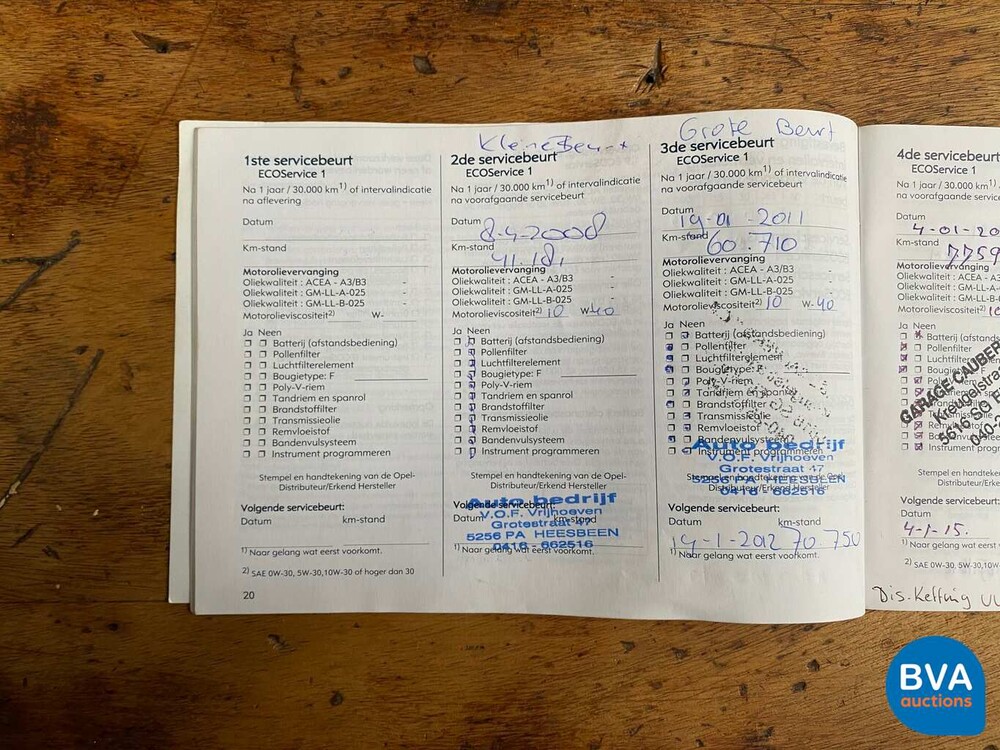 1ste servicebeurt
ECOService 1
Na 1 jaar / 30.000 km1) of intervalindicatie
na aflevering
Datum
Km-stand
Motorolievervanging
Oliekwaliteit : ACEA - A3/B3 -
Oliekwaliteit : GM-LL-A-025 -
Oliekwaliteit : GM-LL-B-025 -
Motorolieviscositeit2) W-
Ja Neen
Batterij (afstandsbediening)
Pollenfilter
Luchtfilterelement
Bougietype: F
Poly-V-riem
Tandriem en spanrol
Brandstoffilter
Transmissieolie
Remvloeistof
Bandenvulsysteem
Instrument programmeren
Stempel en handtekening van de Opel-
Distributeur/Erkend Hersteller
Volgende servicebeurt:
Datum km-stand
1) Naar gelang wat eerst voorkomt.
2) SAE 0W-30, 5W-30,10W-30 of hoger dan 30
20
Kleine Beurt
2de servicebeurt
ECOService 1
Na 1 jaar / 30.000 km1) of intervalindicatie
na voorafgaande servicebeurt
Datum
8-4-2008
Km-stand
41.181
Motorolievervanging
Oliekwaliteit : ACEA - A3/B3 -
Oliekwaliteit : GM-LL-A-025 -
Oliekwaliteit : GM-LL-B-025 -
Motorolieviscositeit2) 10 W-40
Ja Neen
Batterij (afstandsbediening)
Pollenfilter
Luchtfilterelement
Bougietype: F
Poly-V-riem
Tandriem en spanrol
Brandstoffilter
Transmissieolie
Remvloeistof
Bandenvulsysteem
Instrument programmeren
Stempel en handtekening van de Opel-
Distributeur/Erkend Hersteller
Volgende servicebeurt:
Datum km-stand
Auto bedrijf
V.O.F. Vrijhoeven
Grotestraat 47
5256 PA HEESBEEN
0416 - 662516
1) Naar gelang wat eerst voorkomt.
Grote Beurt
3de servicebeurt
ECOService 1
Na 1 jaar / 30.000 km1) of intervalindicatie
na voorafgaande servicebeurt
Datum
19-01-2011
Km-stand
60.710
Motorolievervanging
Oliekwaliteit : ACEA - A3/B3 -
Oliekwaliteit : GM-LL-A-025 -
Oliekwaliteit : GM-LL-B-025 -
Motorolieviscositeit2) 10 W-40
Ja Neen
Batterij (afstandsbediening)
Pollenfilter
Luchtfilterelement
Bougietype: F
Poly-V-riem
Tandriem en spanrol
Brandstoffilter
Transmissieolie
Remvloeistof
Bandenvulsysteem
Instrument programmeren
Auto bedrijf
V.O.F. Vrijhoeven
Grotestraat 47
5256 PA HEESBEEN
0416 - 662516
Stempel en handtekening van de Opel-
Distributeur/Erkend Hersteller
Volgende servicebeurt:
Datum km-stand
19-1-2012 70 750
1) Naar gelang wat eerst voorkomt.
4de servicebeurt
ECOService 1
Na 1 jaar / 30.000 k
na voorafgaande serv
Datum
4-01-20
Km-stand
7759
Motorolievervanging
Oliekwaliteit : ACEA -
Oliekwaliteit : GM-LL-
Oliekwaliteit : GM-LL-
Motorolieviscositeit2) 10
Ja Neen
Batterij (afstands
Pollenfilter
Luchtfilterele
Bougietype:
GARAGE CAUBER
Kreugelstra
5616 SG
040-2
Remvloeistof
Bandenvulsyst
Instrument pro
Stempel en handteke
Distributeur/Er
Volgende servicebeurt
Datum
4-1-15.
1) Naar gelang wat eers
2) SAE 0W-30, 5W-30,10W
BVA
auctions